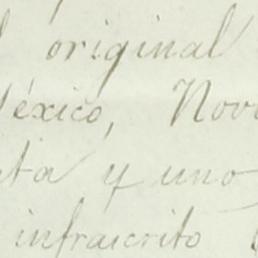 original
México, Nov
y uno
infraicrito